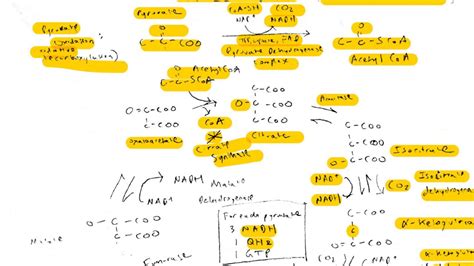 Pyruvate
oxidation
Pyruvate
CoA-SH CO2
NAD+ NADH
C-C-COO
TPP, Lipoate, FAD
Pyruvate Dehydrogenase
Complex
C-C-SCoA
Acetyl CoA
Acetyl CoA
C-C-SCoA
O=C-COO
C-COO
Oxaloacetate
CoA
Citrate
Synthase
C-COO
O-C-COO
C-COO
Citrate
Aconitase
C-COO
C-COO
O-C-COO
Isocitrate
NADH
NAD+
Malate
Dehydrogenase
NAD+
NADH
CO2
Isocitrate
dehydrogenase
O-C-COO
C-COO
Malate
For each pyruvate
3 NADH
1 QH2
1 GTP
C-COO
Fumarase